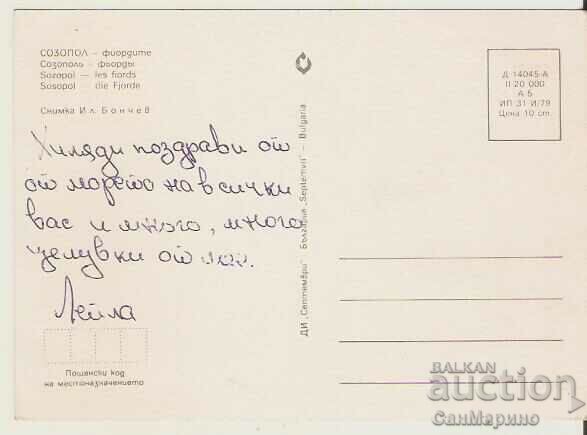 СОЗОПОЛ – фиордите
Созополь – фьорды
Sozopol – les fiords
Sosopol – die Fjorde
Снимка Ил. Бончев
Хиляди поздрави от
от морето на всички
вас и много, много
целувки от
Лейла
Пощенски код
на местоназначението
ДИ „Септември" България „Septemvri" – Bulgaria
Д 14045-А
II 20 000
А 5
ИП 31 И/79
Цена 10 ст.
BALKAN
auction
СанМарино